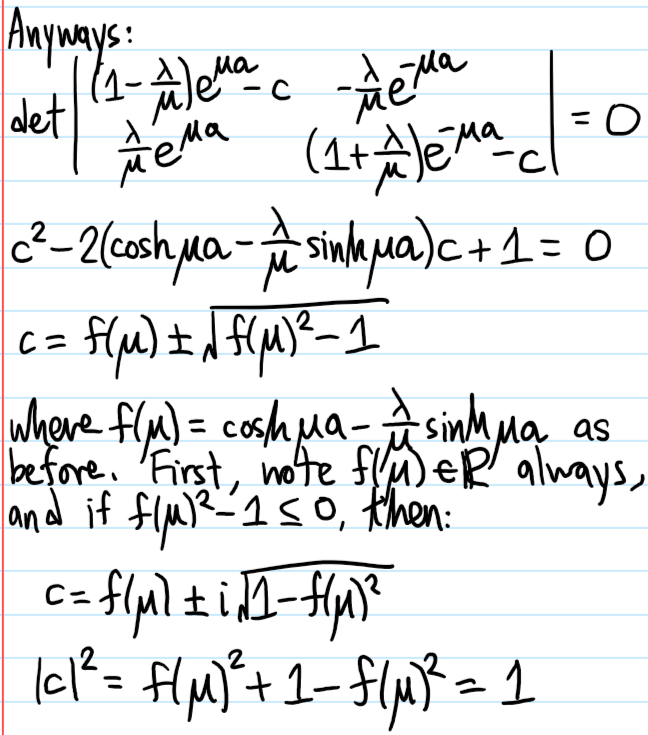 Anyways:
det | (1-λ/μ)e^{μa}-c   -λ/μ e^{-μa} |
| λ/μ e^{μa}   (1+λ/μ)e^{-μa}-c | = 0
c²-2(cosh μa-λ/μ sinh μa)c+1=0
c = f(μ) ± √(f(μ)²-1)
where f(μ) = cosh μa - λ/μ sinh μa as
before. First, note f(μ)∈ℝ always,
and if f(μ)²-1≤0, then:
c = f(μ) ± i√(1-f(μ)²)
|c|² = f(μ)²+1-f(μ)² = 1